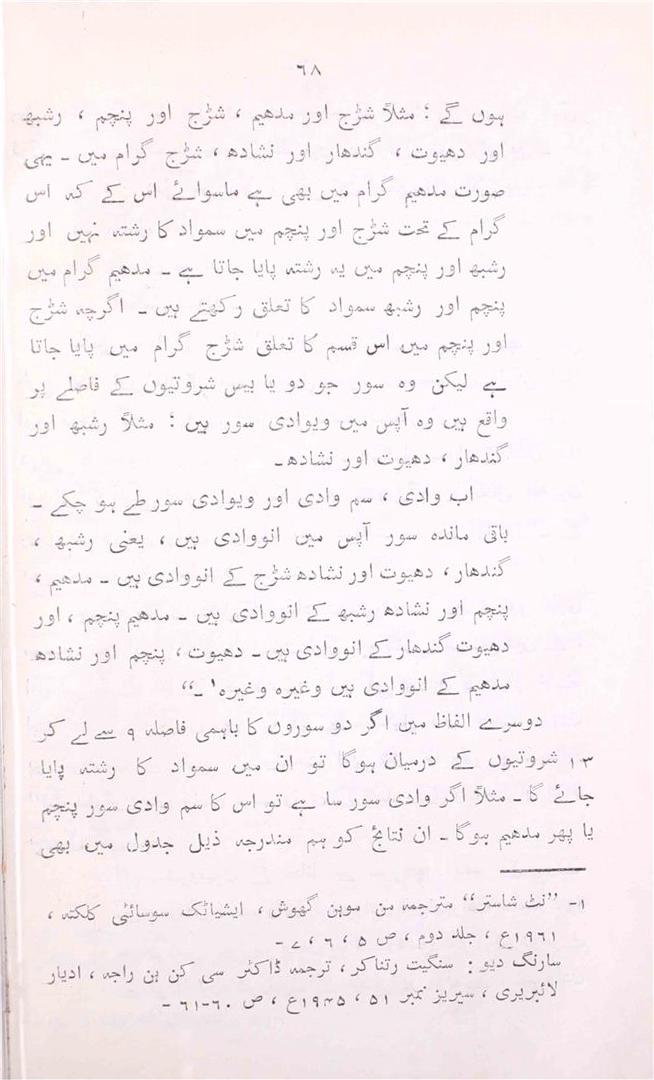 ۶۸
ہوں گے ؛ مثلاً شڑج اور مدھیم ، شڑج اور پنچم ، رشبھ
اور دھیوت ، گندھار اور نشادھ ، شڑج گرام میں ۔ یہی
صورت مدھیم گرام میں بھی ہے ماسوائے اس کے کہ اس
گرام کے تحت شڑج اور پنچم میں سمواد کا رشتہ نہیں اور
رشبھ اور پنچم میں یہ رشتہ پایا جاتا ہے ۔ مدھیم گرام میں
پنچم اور رشبھ سمواد کا تعلق رکھتے ہیں ۔ اگرچہ شڑج
اور پنچم میں اس قسم کا تعلق شڑج گرام میں پایا جاتا
ہے لیکن وہ سور جو دو یا بیس شروتیوں کے فاصلے پر
واقع ہیں وہ آپس میں ویوادی سور ہیں ؛ مثلاً رشبھ اور
گندھار ، دھیوت اور نشادھ ۔
اب وادی ، سم وادی اور ویوادی سور طے ہو چکے ۔
باقی ماندہ سور آپس میں انووادی ہیں ، یعنی رشبھ ،
گندھار ، دھیوت اور نشادھ شڑج کے انووادی ہیں ۔ مدھیم ،
پنچم اور نشادھ رشبھ کے انووادی ہیں ۔ مدھیم پنچم ، اور
دھیوت گندھار کے انووادی ہیں ۔ دھیوت ، پنچم اور نشادھ
مدھیم کے انووادی ہیں وغیرہ وغیرہ¹ ۔“
دوسرے الفاظ میں اگر دو سوروں کا باہمی فاصلہ ۹ سے لے کر
۱۳ شروتیوں کے درمیان ہوگا تو ان میں سمواد کا رشتہ پایا
جائے گا ۔ مثلاً اگر وادی سور سا ہے تو اس کا سم وادی سور پنچم
یا پھر مدھیم ہوگا ۔ ان نتائج کو ہم مندرجہ ذیل جدول میں بھی
۱۔ ”نٹ شاستر“ مترجمہ من موہن گھوش ، ایشیاٹک سوسائٹی کلکتہ ،
۱۹۶۱ع ، جلد دوم ، ص ۵ ، ۶ ، ۷ ۔
سارنگ دیو : سنگیت رتناکر ، ترجمہ ڈاکٹر سی کن ہن راجہ ، ادیار
لائبریری ، سیریز نمبر ۵۱ ، ۱۹۴۵ع ، ص ۶۰-۶۱ ۔